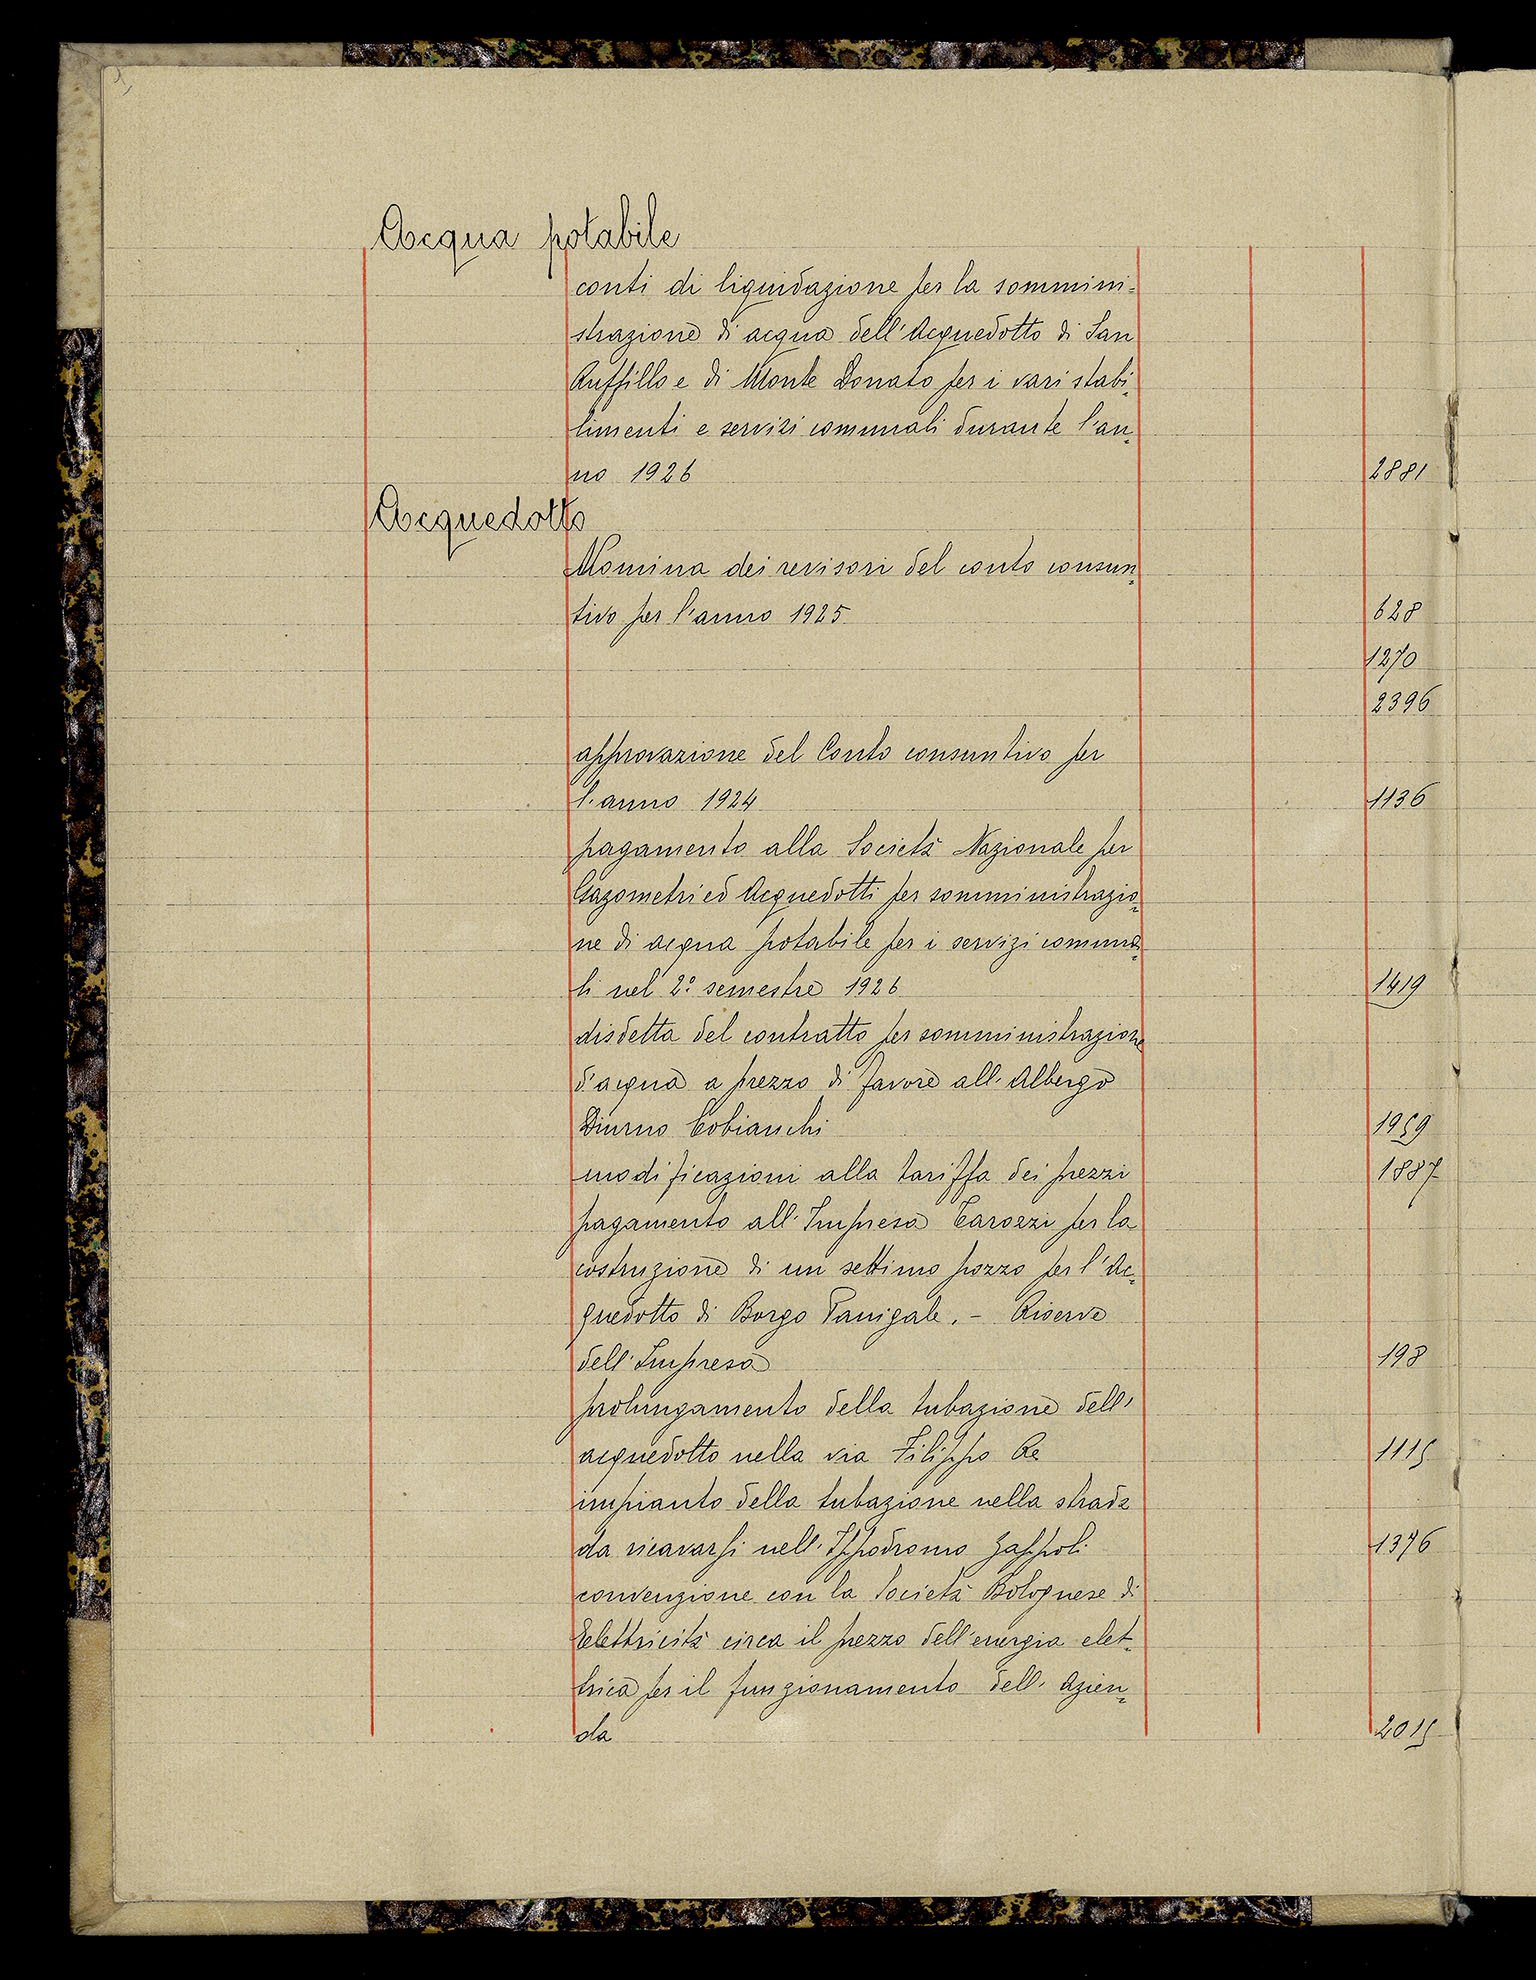 Acqua potabile
conti di liquidazione per la sommini=
strazione di acqua dell'Acquedotto di San
Ruffillo e di Monte Donato per i vari stabi=
limenti e servizi comunali durante l'an=
no 1926 2881
Acquedotto
Nomina dei revisori del conto consun=
tivo per l'anno 1925 628
1270
2396
approvazione del Conto consuntivo per
l'anno 1924 1136
pagamento alla Società Nazionale per
Gazometri ed Acquedotti per somministrazio=
ne di acqua potabile per i servizi comuna=
li nel 2º semestre 1926 1419
disdetta del contratto per somministrazione
d'acqua a prezzo di favore all'Albergo
Diurno Cobianchi 1959
modificazioni alla tariffa dei prezzi 1887
pagamento all'Impresa Tarozzi per la
costruzione di un settimo pozzo per l'Ac=
quedotto di Borgo Panigale. - Riserve
dell'Impresa 198
prolungamento della tubazione dell'
acquedotto nella via Filippo Re 1115
impianto della tubazione nella strada
da ricavarsi nell'Ippodromo Zappoli 1376
convenzione con la Società Bolognese di
Elettricità circa il prezzo dell'energia elet=
trica per il funzionamento dell'Azien=
da 2015